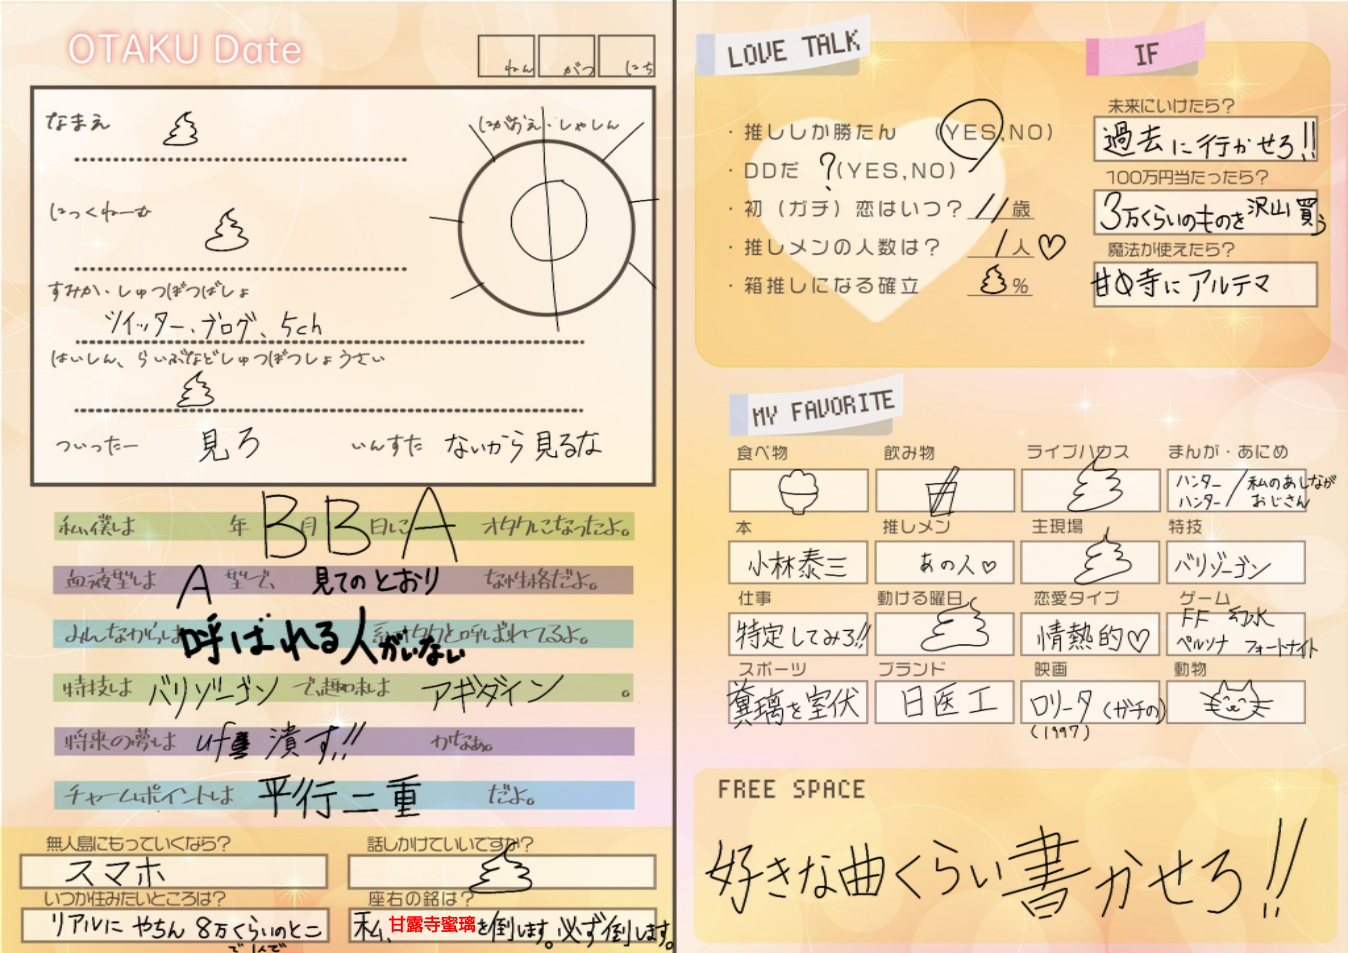 OTAKU Date
ねん がつ にち
なまえ
にがおえ・しゃしん
にっくねーむ
すみか・しゅつぼつばしょ
ツイッター、ブログ、5ch
はいしん、らいぶなどしゅつぼつしょうさい
ついったー 見ろ いんすた ないから見るな
私、僕は 年 B月B日にA オタクになったよ。
血液型は A 型で、見てのとおり な性格だよ。
みんなからは呼ばれる人がいない 系オタクと呼ばれてるよ。
特技は バリゾーゴン で、趣味は アギダイン 。
将来の夢は 潰す!! かなぁ。
チャームポイントは 平行二重 だよ。
無人島にもっていくなら?
スマホ
話しかけていいですか?
いつか住みたいところは?
リアルに やちん 8万くらいのとこ
座右の銘は?
私、甘露寺蜜璃を倒します。必ず倒します。
LOVE TALK
・推ししか勝たん (YES,NO)
・DDだ ?(YES,NO)
・初(ガチ)恋はいつ? 11歳
・推しメンの人数は? 1人♡
・箱推しになる確立 %
IF
未来にいけたら?
過去に行かせろ!!
100万円当たったら?
3万くらいのものを沢山買う
魔法が使えたら?
寺にアルテマ
MY FAVORITE
食べ物 飲み物 ライブハウス まんが・あにめ
ハンターハンター/私のあしながおじさん
本 推しメン 主現場 特技
小林泰三 あの人♡ バリゾーゴン
仕事 動ける曜日 恋愛タイプ ゲーム
特定してみろ!! 情熱的♡ FF 幻水 ペルソナ フォートナイト
スポーツ ブランド 映画 動物
糞璃を室伏 日医工 ロリータ(ガチの)
(1997)
FREE SPACE
好きな曲くらい書かせろ!!